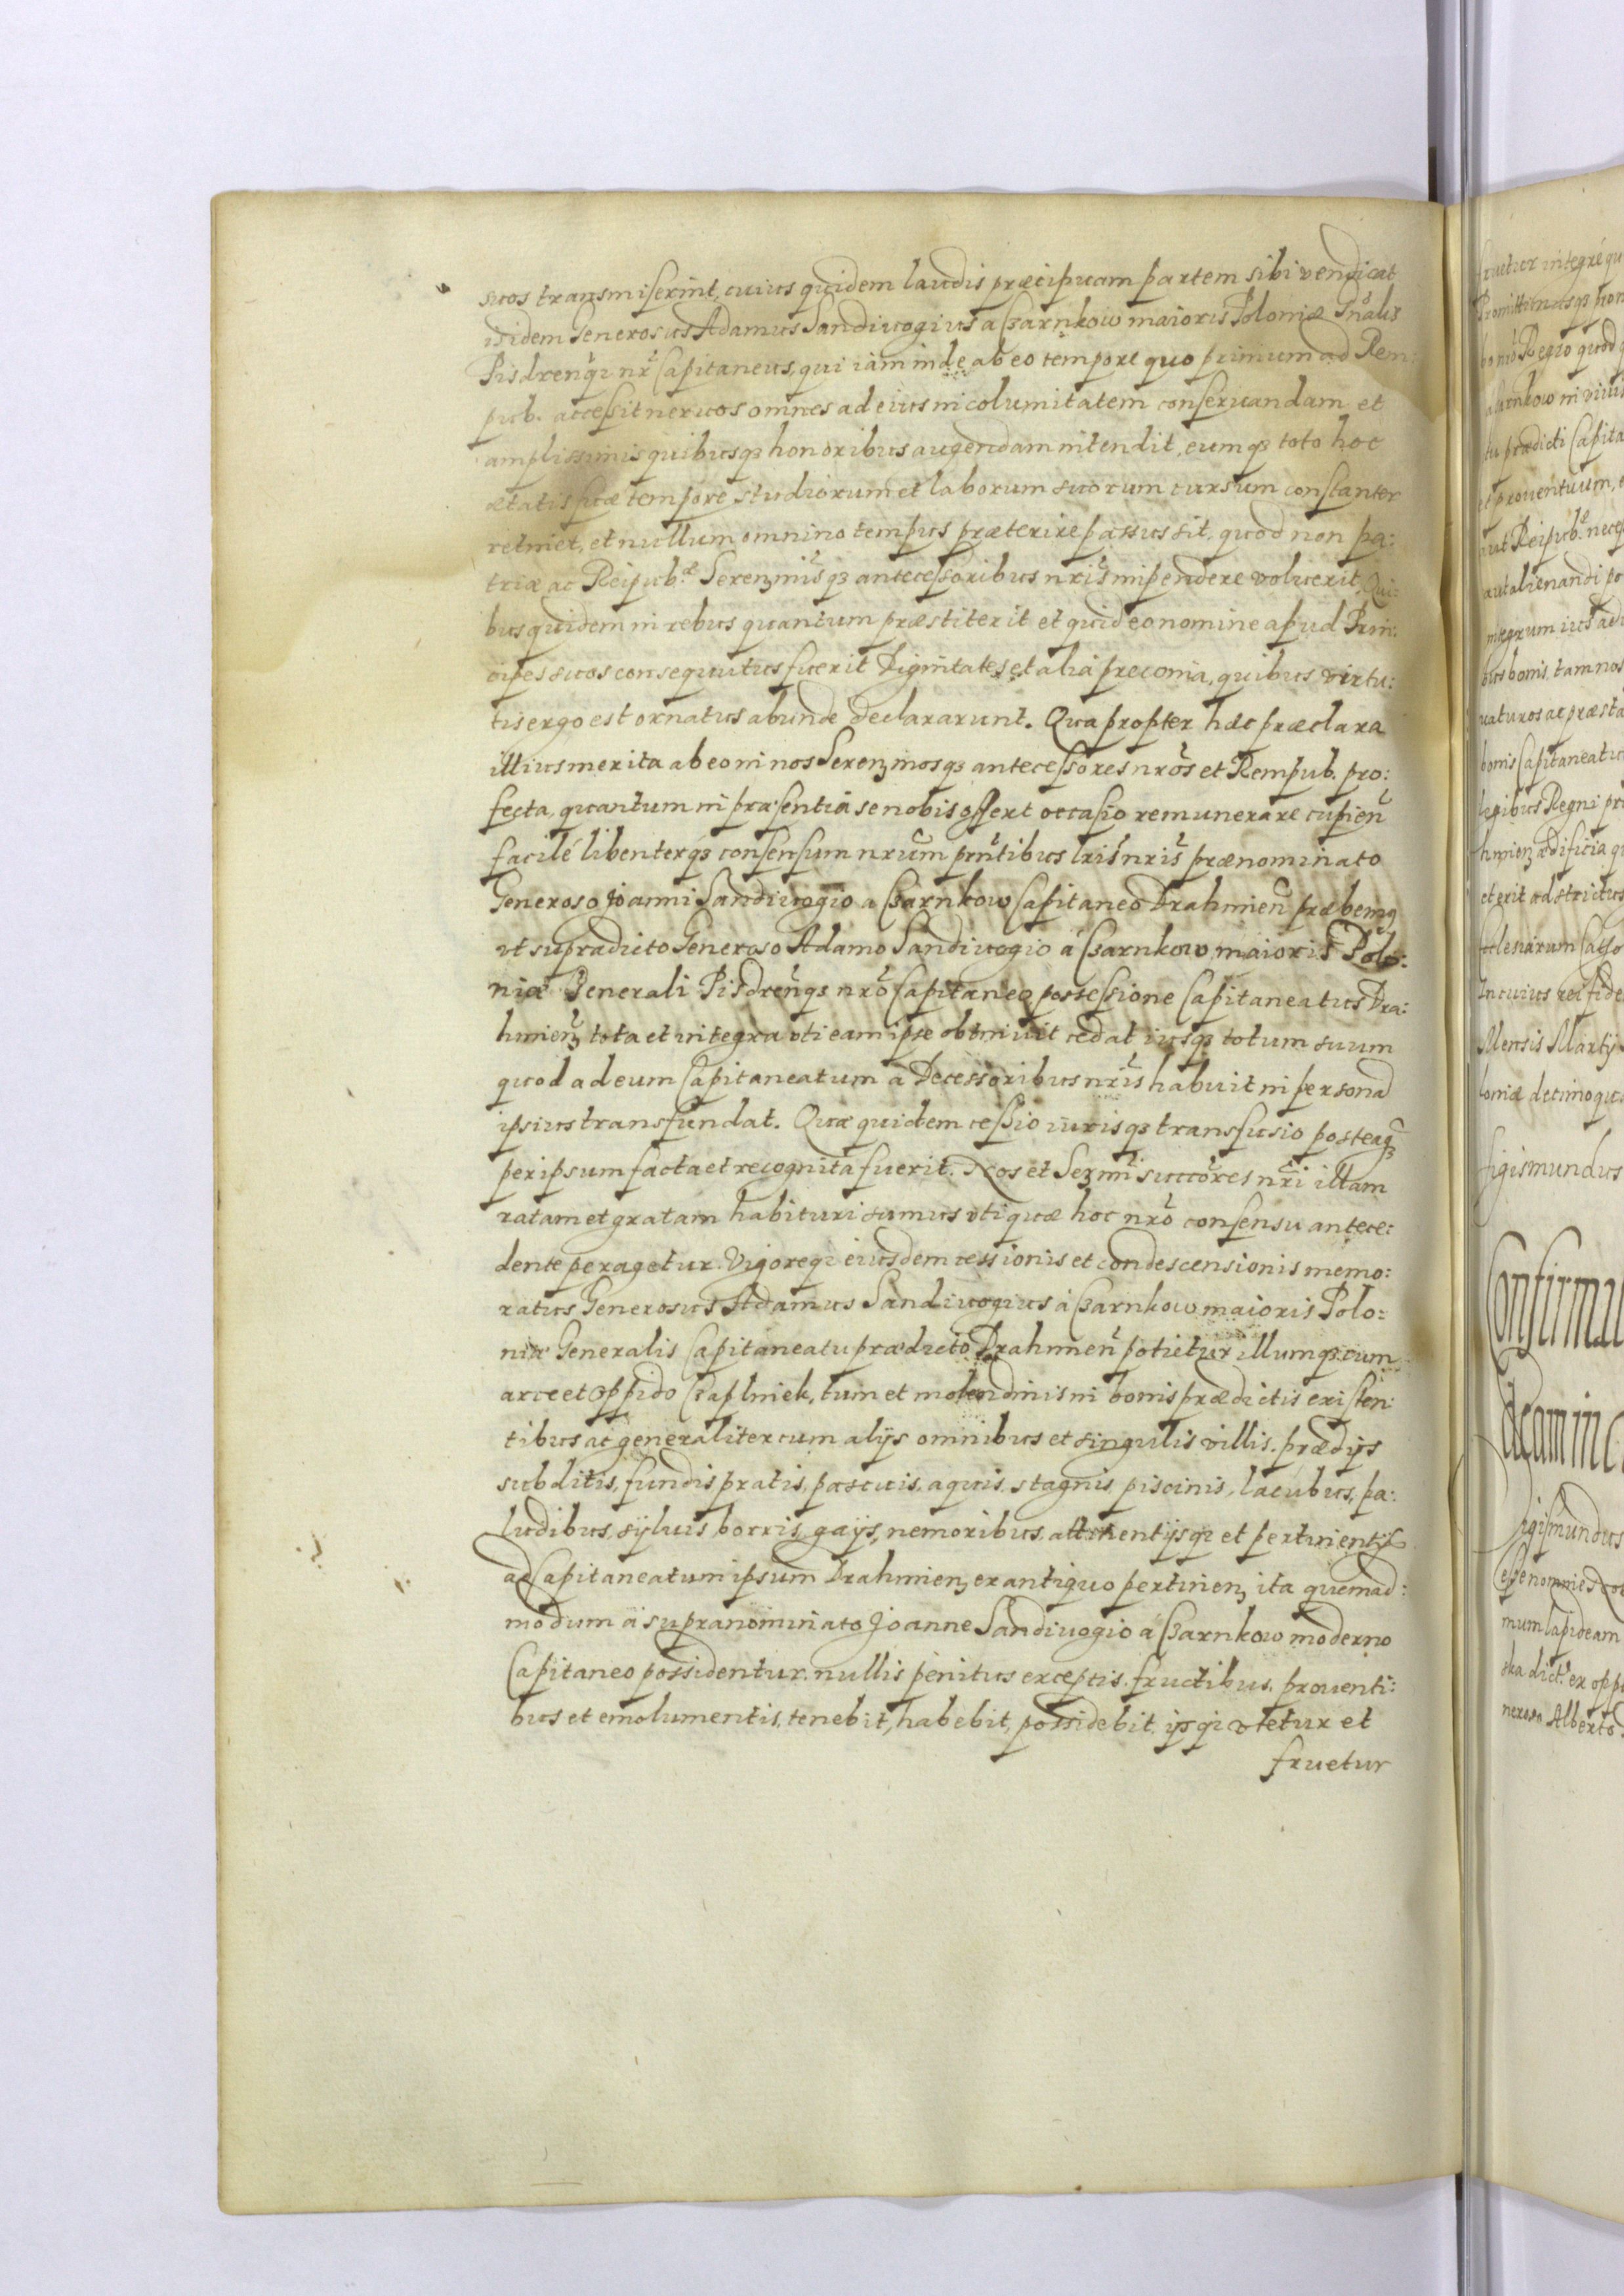 suos transmiserint, cuius quidem laudis præcipuam partem sibi vendicat
isidem Generosus Adamus Sandiuogius a Czarnkow maioris Poloniæ Gnãlis
Pisdren̄q; nr̃ Capitaneus, qui iam inde ab eo tempore quo primum ad Rem:
pub. accessit neruos omnes ad eius incolumitatem conseruandam et
amplissimis quibusq; honoribus augendam intendit, eumq; toto hoc
ætatis suæ tempore studiorum et laborum suorum cursum constanter
retiniet, et nullum omnino tempus præterire passus sit, quod non pa:
triæ ac Reipub.æ Serenzmisq; antecessoribus nris̃ impendere voluerit. Qui:
bus quidem in rebus quantum præstiterit et quid eo nomine apud Prin:
cipes suos consequutus fuerit Dignitates et alia preconia, quibus virtu:
tis ergo est ornatus abunde declararunt. Qua propter hæc præclara
illius merita ab eo in nos Serenzmosq; antecessores nrõs et Rempub. pro:
fecta, quantum in præsentia se nobis offert occasio remunerare cupien̄
facilè libenterq; consensum nrũm pn̄tibus lris̃ nris̃ prænominato
Generoso Joanni Sandiuogio a Czarnkow Capitaneo Drahmien̄ præbemq
vt supradicto Generoso Adamo Sandiuogio á Czarnkow maioris Polo:
niæ Generali Pisdren̄q; nrõ Capitaneo possessione Capitaneatus Dra:
himienz tota et integra vti eam ipse obtinuit cedat iusq; totum suum
quod ad eum Capitaneatum a Decessoribus nris̃ habuit in persona
ipsius transfundat. Quæ quidem cessio iurisq; transfusio posteaq̃
per ipsum facta et recognita fuerit. Nos et Sezmi succores nrĩ illam
ratam et gratam habituri sumus vti quæ hoc nrõ consensu antece:
dente peragetur. Vigoreq; eiusdem cessionis et condescensionis memo:
ratus Generosus Adamus Sandiuogius á Czarnkow maioris Polo:
niæ Generalis Capitaneatu prædicto Drahimen̄ potietur illumq; cum
arce et oppido Czaplniek, tum et molendinis in bonis prædictis existen:
tibus ac generaliter cum alijs omnibus et singulis villis. prædijs
subditis, fundis pratis, pascuis, aquis, stagnis piscinis, lacubus, pa:
ludibus, syluis borris, gays, nemoribus, attinentijsq; et pertinentijs
ad Capitaneatum ipsum Drahimienz ex antiquo pertinenz ita quemad:
modum á supranominato Joanne Sandiuogio á Czarnkow moderno
Capitaneo possidentur. nullis penitus exceptis. fructibus, prouenti:
bus et emolumentis, tenebit, habebit, possidebit ijsq; vtetur et
fruetur
fruetur integrè qu
Promittimusq; hon
Regio quod
a Czarnkow in viuis
tu prædicti Capita
et prouentuum,
aut Reipub.æ neces
aut alienandi po
integrum ius adu
bus bonis, tam nos
uaturos ac præsta
bonis Capitaneatu
legibus Regni pr
himienz ædificia q
et erit adstrictus
Ecclesiarum Catho
In cuius rei fide
Mensis Martij
loniæ decimoqu
Sigismundus
Confirma
deam in
Sigismundus
esse nomine
mum lapideam
ska dict. ex opp
neroso Alberto